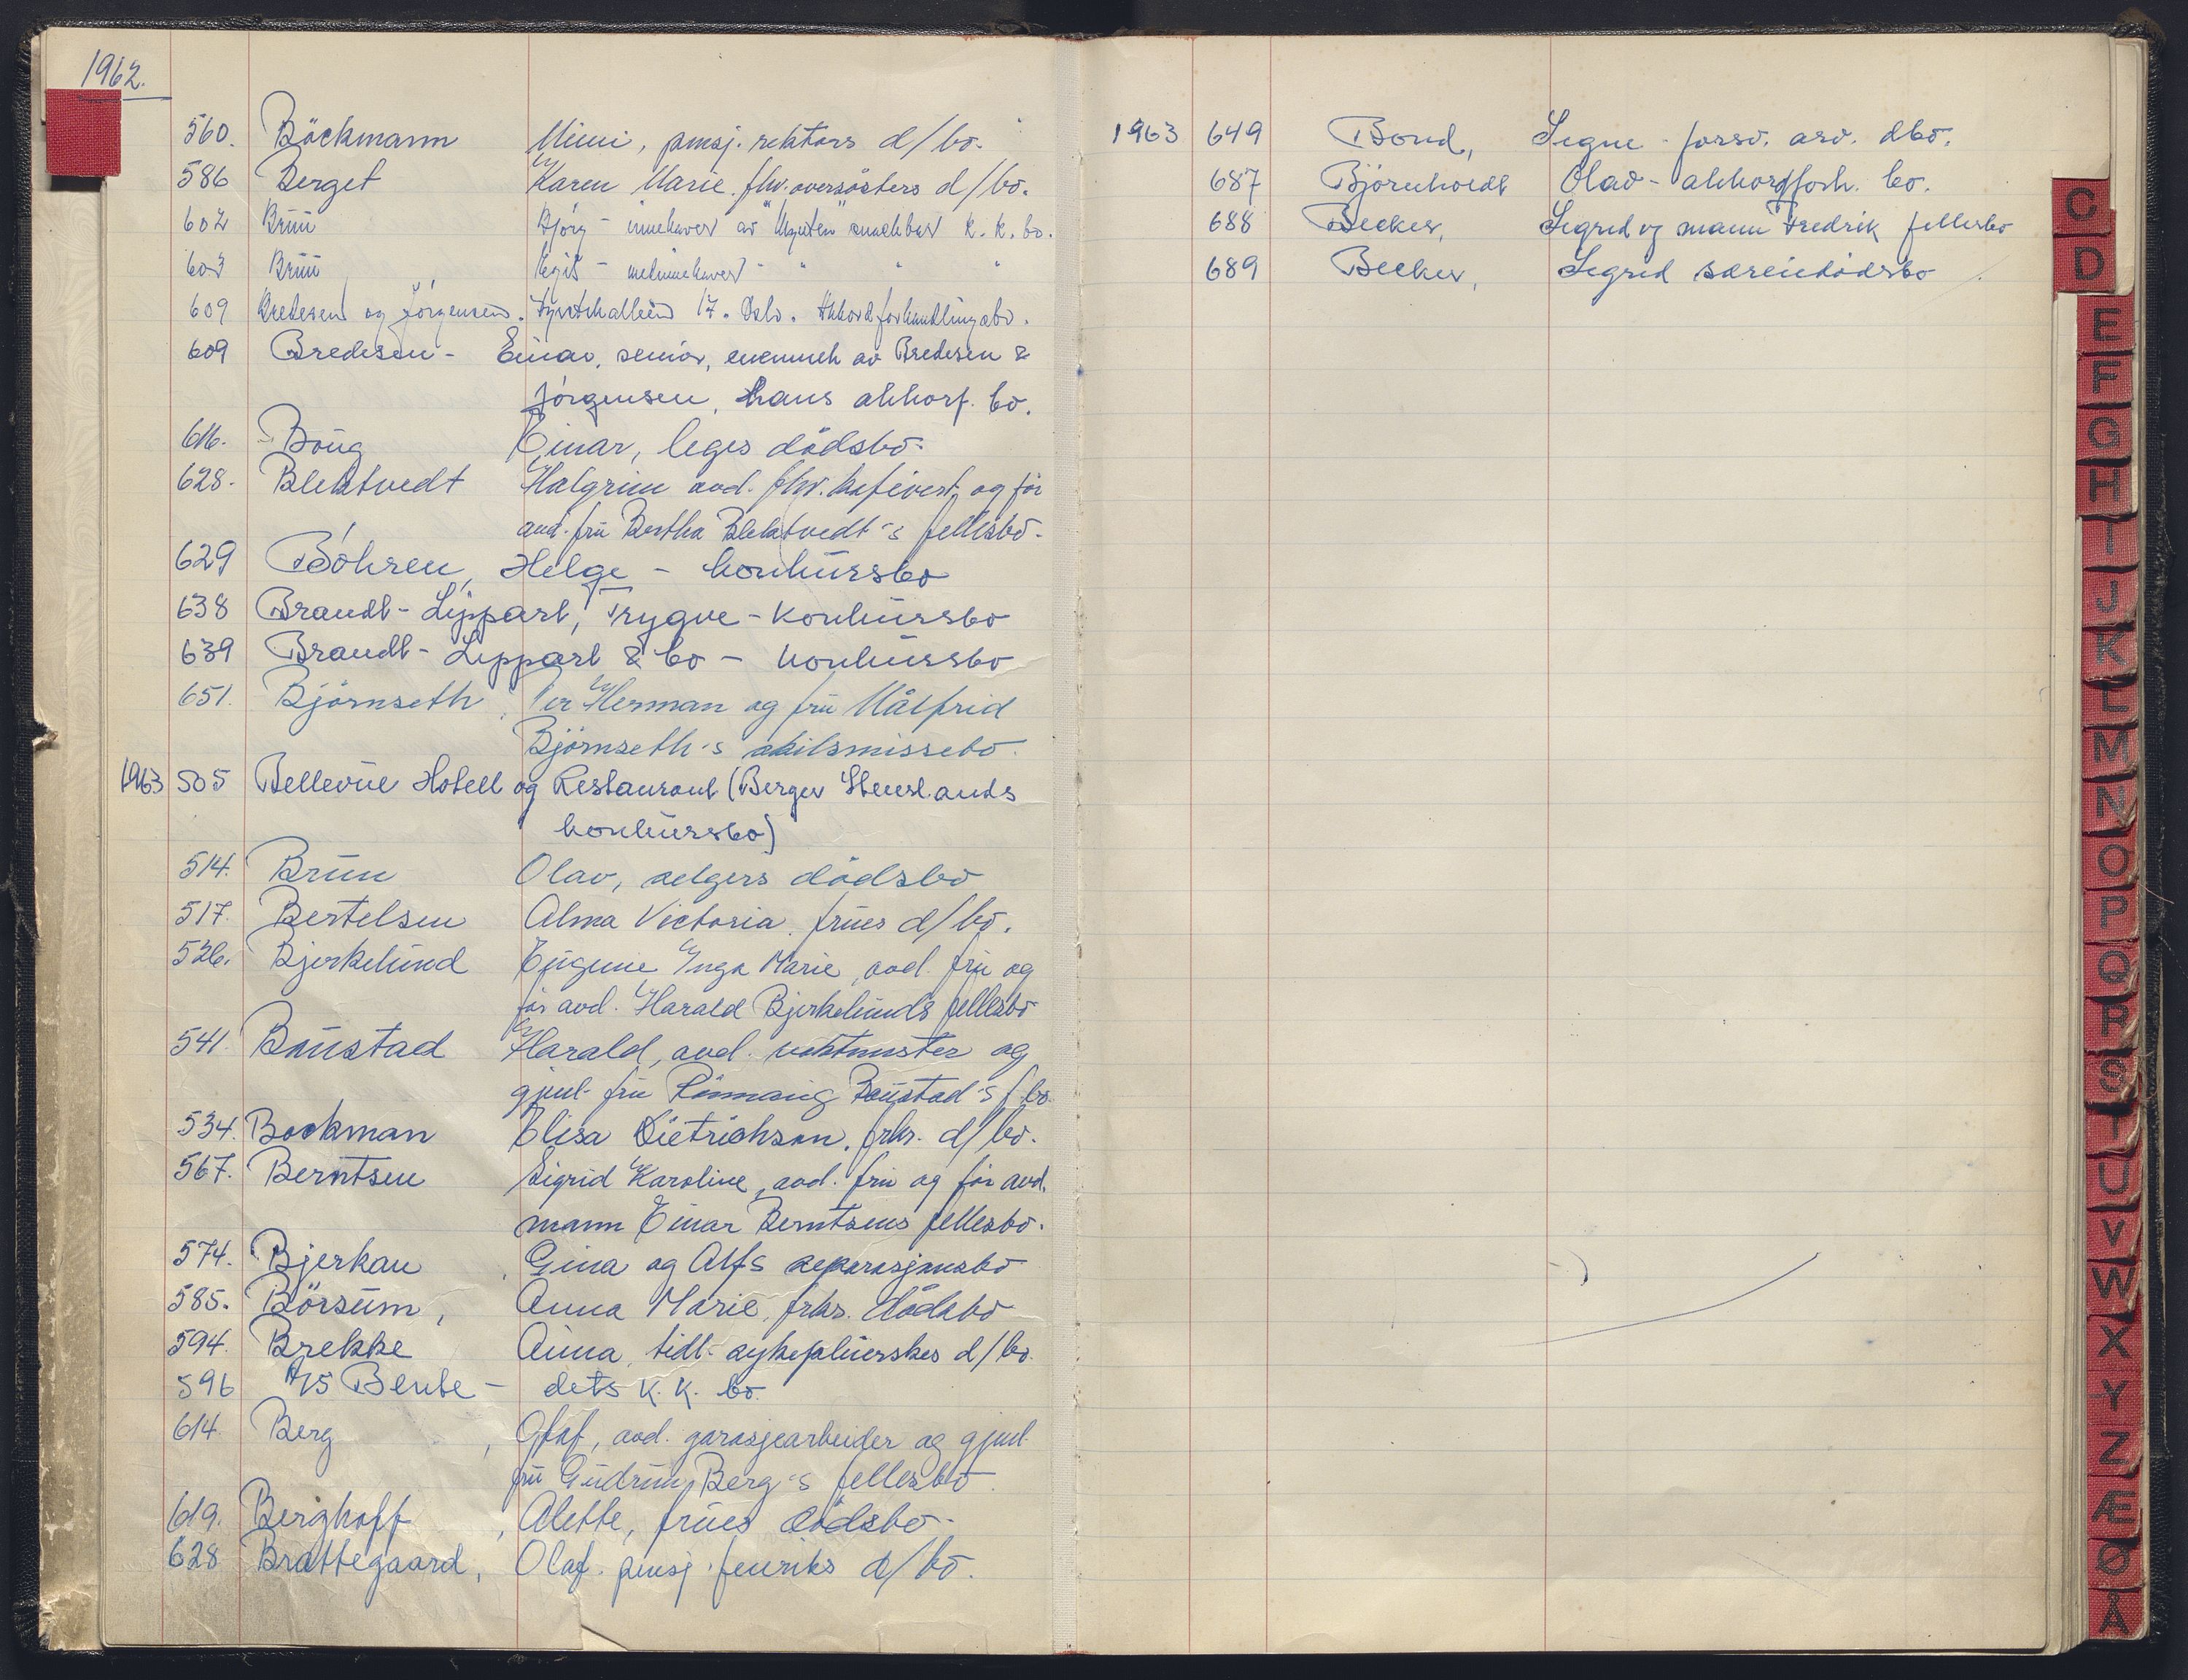 1962.
560. Böckmann Mimi, pensj. rektors d/bo.
586 Berget Karen Marie fhv. oversösters d/bo.
602 Bruu Björg - innehaver av "Mynten" snackbar k.k. bo.
603 Bruu Egil - medinnehaver - " " "
609 Bredesen og Jörgensen. 17. Oslo. Akkordforhandlingsbo.
609 Bredesen - Einar, senior, eneinneh av Bredesen &
Jörgensen, hans akkorf. bo.
616. Boug Einar, leges dödsbo
628. Blektvedt Halgrim avd. fhv. kafévert og før
avd. fru Bertha Blektvedt's fellesbo
629 Böhren, Helge - konkursbo
638 Brandt-Lippart, Trygve - konkursbo
639 Brandt-Lippart & Co - konkursbo
651. Björnseth, Per Herman og fru Målfrid
Björnseth's skilsmissebo
1963 505 Bellevue Hotell og Restaurant (Berger Stenslands
konkursbo)
514. Bruu Olav, selgers dödsbo
517. Bertelsen Alma Victoria, frues d/bo.
526. Bjerkelund Eugenie Inga Marie, avd. fru og
før avd. Harald Bjerkelunds fellesbo
541. Baustad Harald, avd. vaktmester og
gjenl. fru Rönnaug Baustad's f.bo
534. Bockman Elisa Dietrichson, frkr. d/bo.
567. Berntsen Sigrid Karoline, avd. fru og før avd.
mann Einar Berntsens fellesbo.
574. Bjerkau, Gina og Alfs separasjonsbo
585. Börsum, Anna Marie, frkr. dödsbo
594. Brekke Anna, tidl. sykepleierskes d/bo
596 A/S Bente - dets K.K. bo.
614 Berg, Olaf, avd. garasjearbeider og gjenl.
fru Gudrun Berg's fellesbo
619. Berghoff, Alette, frues dödsbo
628 Brattegaard, Olaf. pensj. fenriks d/bo.
1963 649 Bond, Signe - forsv. arv. dbo.
687 Björnholdt Olav - akkordforh. bo.
688 Becker, Sigrid og mann Fredrik fellesbo
689 Becker, Sigrid særeiedödsbo
C
D
E
F
G
H
I
J
K
L
M
N
O
P
Q
R
S
T
U
V
W
X
Y
Z
Æ
Ø
Å